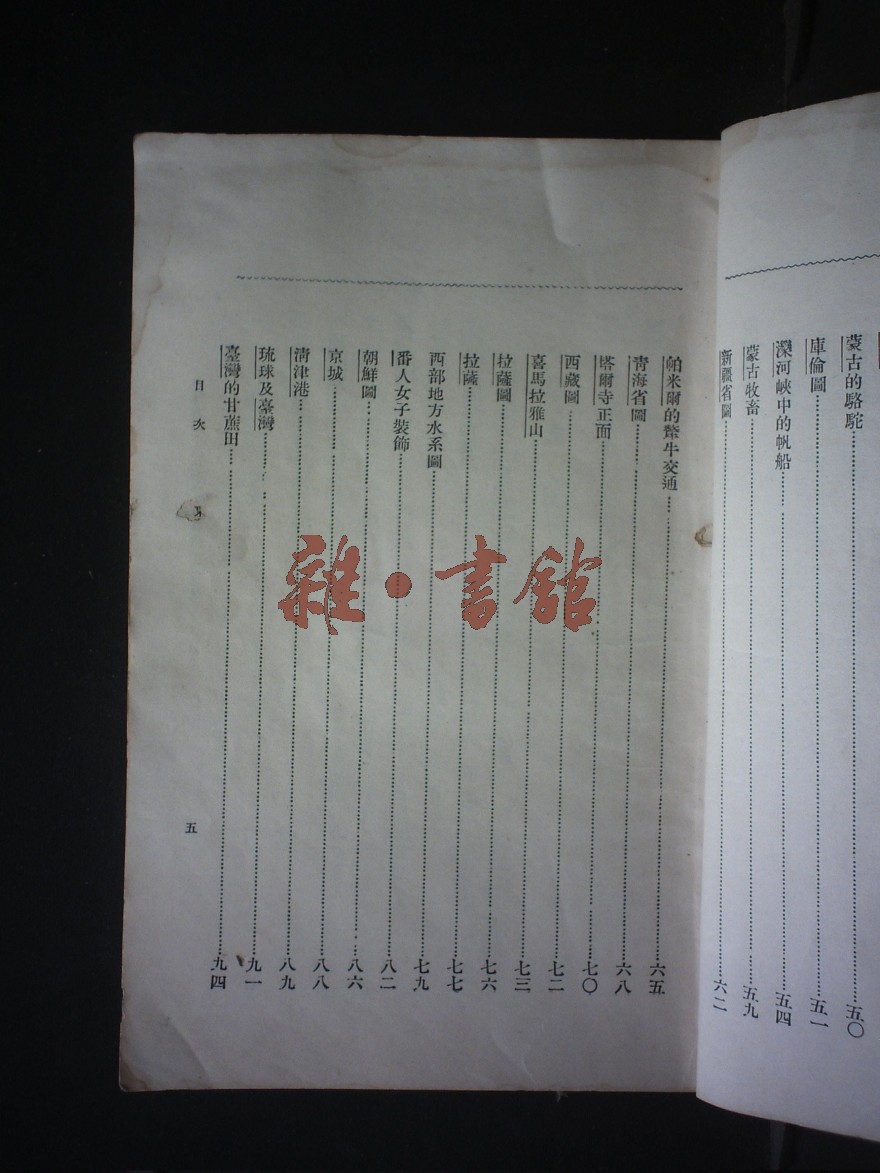 蒙古的駱駝……五〇
庫倫圖……五一
灤河峽中的帆船……五四
蒙古牧畜……五九
新疆省圖……六二
帕米爾的犛牛交通……六五
靑海省圖……六八
塔爾寺正面……七〇
西藏圖……七二
喜馬拉雅山……七三
拉薩圖……七六
拉薩……七七
西部地方水系圖……七九
番人女子裝飾……八二
朝鮮圖……八六
京城……八八
淸津港……八九
琉球及臺灣……九一
臺灣的甘蔗田……九四
目次
五
雜・書館